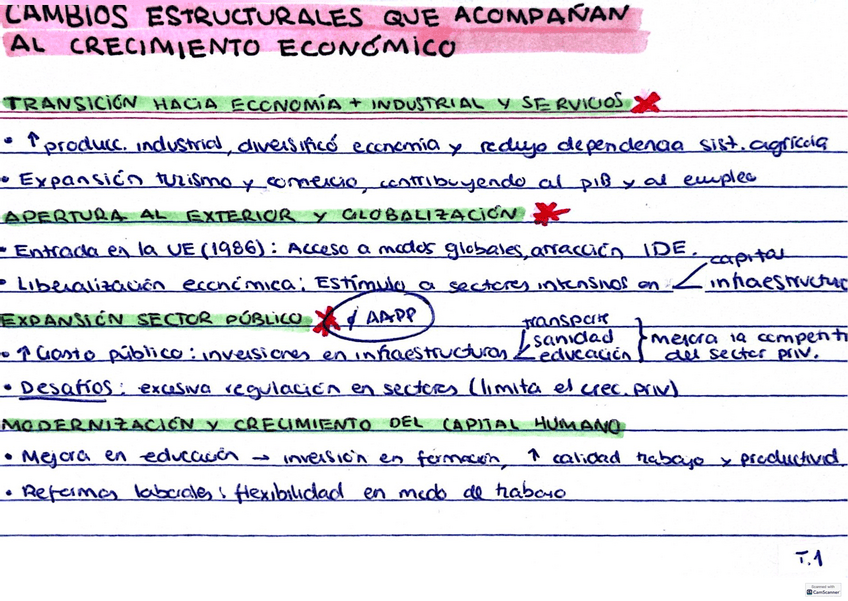 CAMBIOS ESTRUCTURALES QUE ACOMPAÑAN
AL CRECIMIENTO ECONÓMICO
TRANSICIÓN HACIA ECONOMÍA + INDUSTRIAL Y SERVICIOS
• ↑ producc. industrial, diversificó economía y redujo dependencia sist. agrícola
• Expansión turismo y comercio, contribuyendo al PIB y al empleo
APERTURA AL EXTERIOR Y GLOBALIZACIÓN
• Entrada en la UE (1986): Acceso a mcdos globales, atracción IDE.
• Liberalización económica: Estímulo a sectores intensivos en capital
infraestructuc
EXPANSIÓN SECTOR PÚBLICO AAPP
• ↑ Gasto público: inversiones en infraestructuras
transporte
sanidad
educación
mejora la competiti
del sector priv.
• Desafíos: excesiva regulación en sectores (limita el crec. priv)
MODERNIZACIÓN Y CRECIMIENTO DEL CAPITAL HUMANO
• Mejora en educación → inversión en formación, ↑ calidad trabajo y productivid.
• Reformas laborales: flexibilidad en mcdo de trabajo
T.1
Scanned with
CamScanner